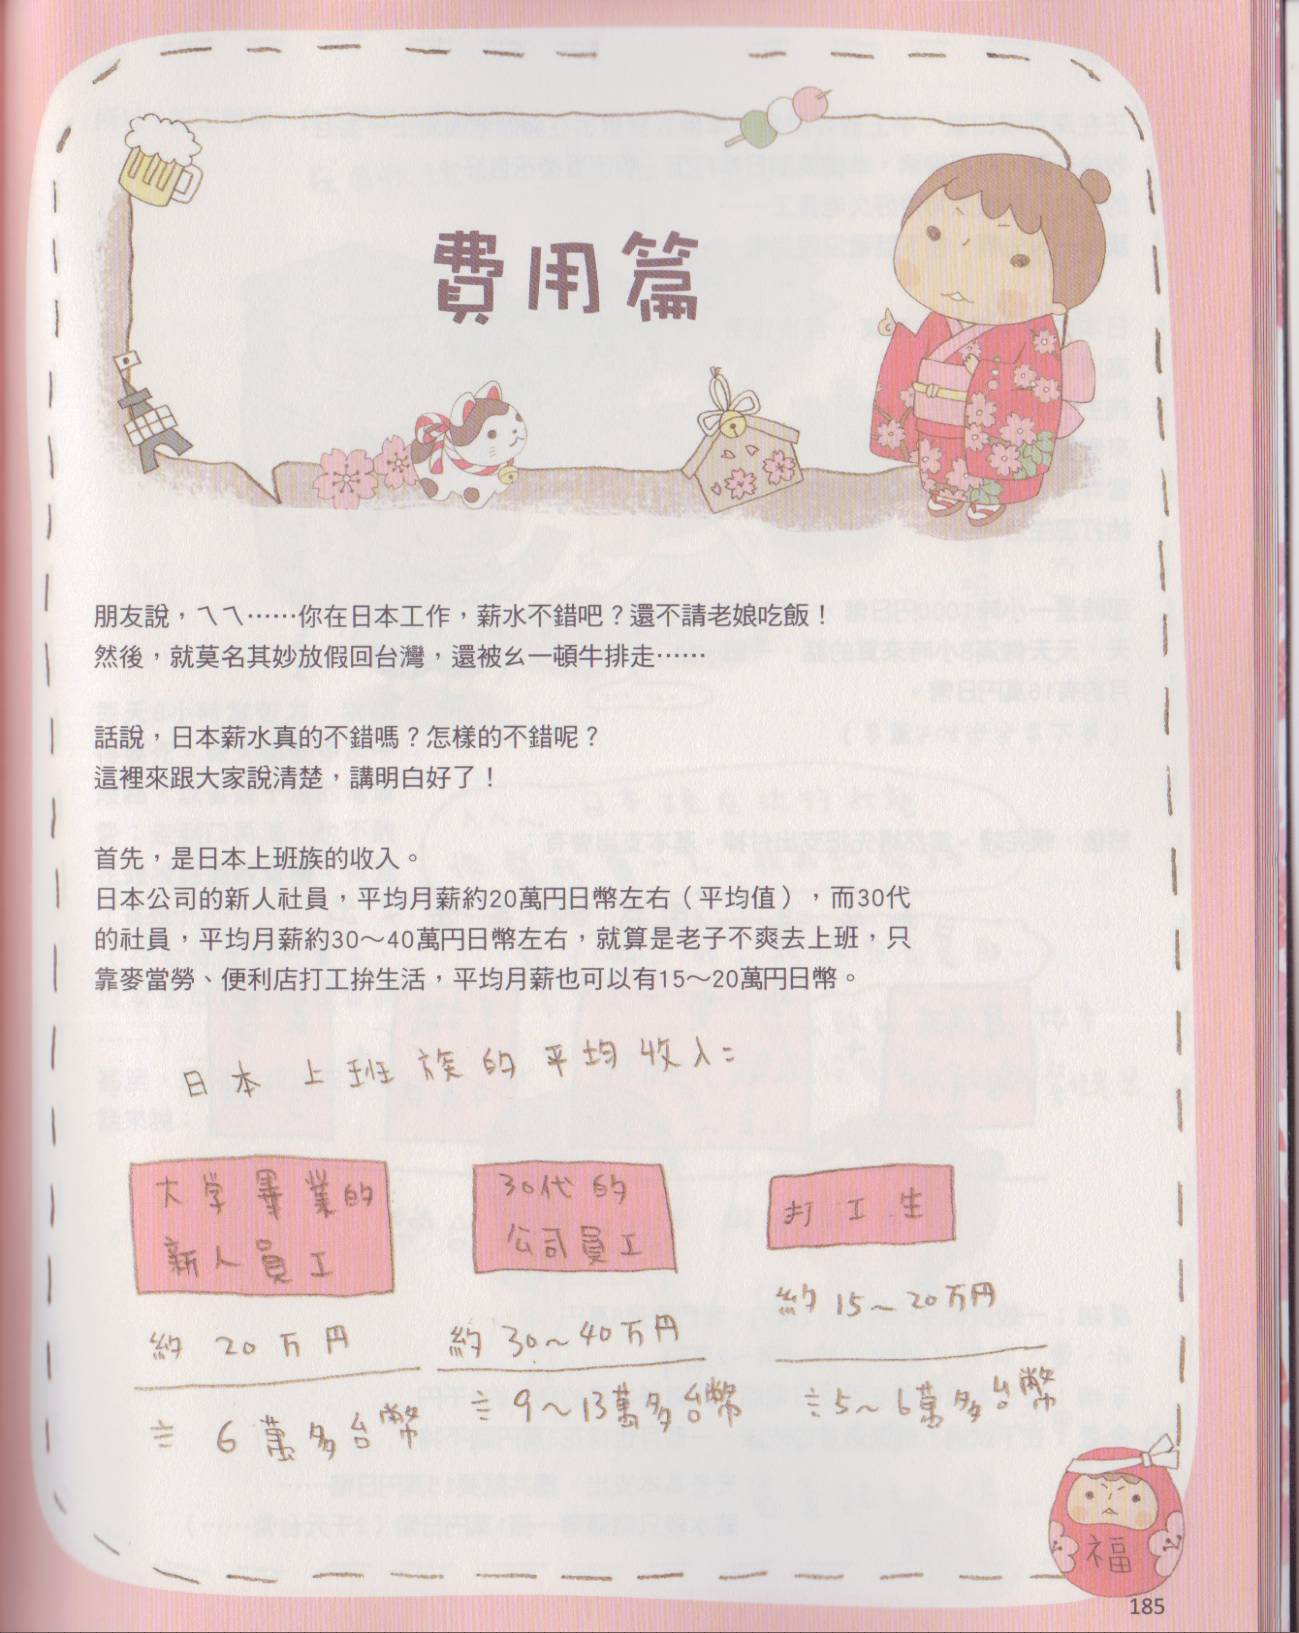 費用篇
朋友說，ㄟㄟ……你在日本工作，薪水不錯吧？還不請老娘吃飯！
然後，就莫名其妙放假回台灣，還被ㄠ一頓牛排走……
話說，日本薪水真的不錯嗎？怎樣的不錯呢？
這裡來跟大家說清楚，講明白好了！
首先，是日本上班族的收入。
日本公司的新人社員，平均月薪約20萬円日幣左右（平均值），而30代
的社員，平均月薪約30～40萬円日幣左右，就算是老子不爽去上班，只
靠麥當勞、便利店打工拚生活，平均月薪也可以有15～20萬円日幣。
日本上班族的平均收入：
大学畢業的
新人員工
約20万円
≒6萬多台幣
30代的
公司員工
約30～40万円
≒9～13萬多台幣
打工生
約15～20万円
≒5～6萬多台幣
福
185